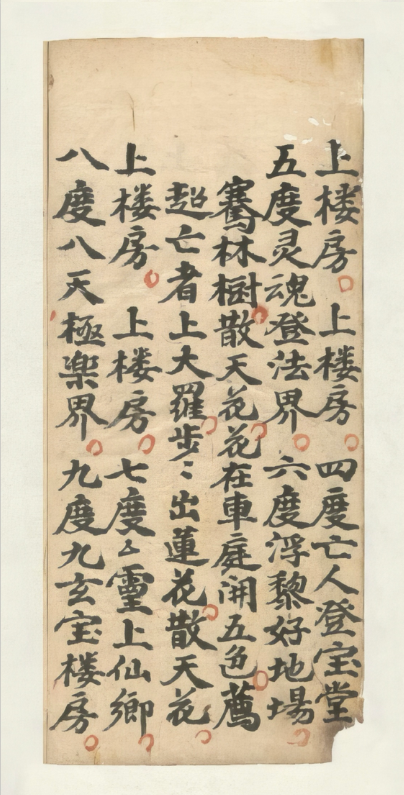 上楼房 上楼房 四度亡人登宝堂
五度灵魂登法界 六度浮黎好地場
騫林樹散天花花在車庭開五色薦
超亡者上大羅步〻出蓮花散天花
上楼房 上楼房 七度亡靈上仙鄉
八度八天極楽界 九度九玄宝楼房